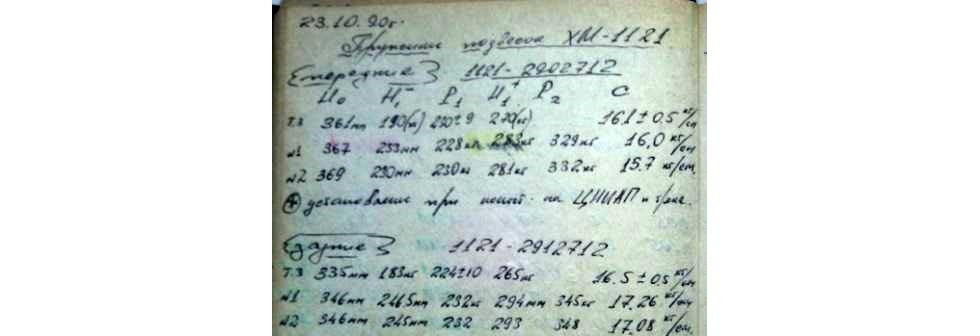 23.10.90г.
Пружины подвески ХМ-1121
{передние} 1121-2902712
H₀ H₁⁻ P₁ H₁⁺ P₂ C
т.з 361мм 190(кг) 220±9 270(кг) 16.1±0.5 кг/см
№1 367 233мм 228кг 283кг 329кг 16,0 кг/см
№2 369 230мм 230кг 281кг 332кг 15.7 кг/см
⊕ установлены при на
{задние} 1121-2912712
т.з 335мм 183кг 224±10 265кг 16.5±0.5 кг/см
№1 346мм 246.5мм 232кг 294мм 345кг 17.26 кг/см
№2 346мм 245мм 232 293 348 17.08 кг/см